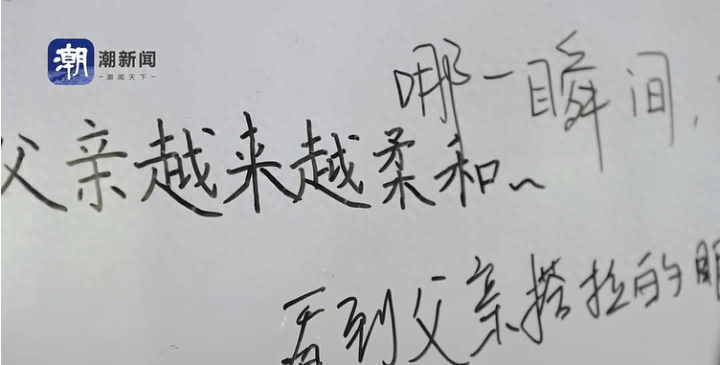 潮
潮新闻
潮闻天下
哪一瞬间,
父亲越来越柔和~
看到父亲搭拉的眼